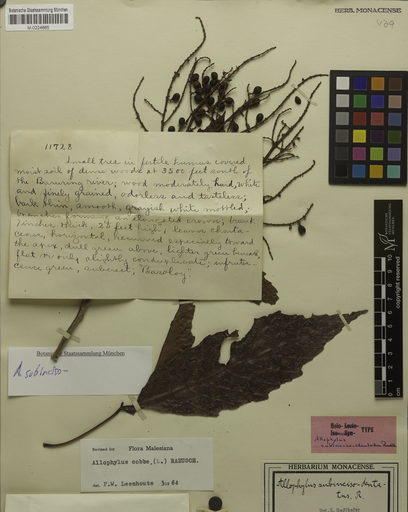 Botanische Staatssammlung München
M-0224665
HERB. MONACENSE.
11728
Small tree in fertile humus covered
moist soil of dense woods at 3500 feet south of
the river; wood moderately hard, white
and finely grained, odorless and tasteless;
bark thin, smooth, grayish white mottled;
branches forming an elongated crown; trunk
inches thick, 25 feet high; leaves charta-
ceous, horizontal, recurved especially toward
the apex, dull green above, lighter green beneath,
flat or only slightly conduplicate; infructes-
cence green, suberect; "Baroloy"
Botanische Staatssammlung München
A subinciso-
Revised for Flora Malesiana
Allophylus cobbe (L.) RAEUSCH.
det. P.W. Leenhouts 3 64
Holo- Lecto-
Iso- Syn- TYPE
Allophylus
subinciso-dentatus Radlk
HERBARIUM MONACENSE.
Allophylus subinciso-denta-
tus, R.
Det. L. Radlkofer